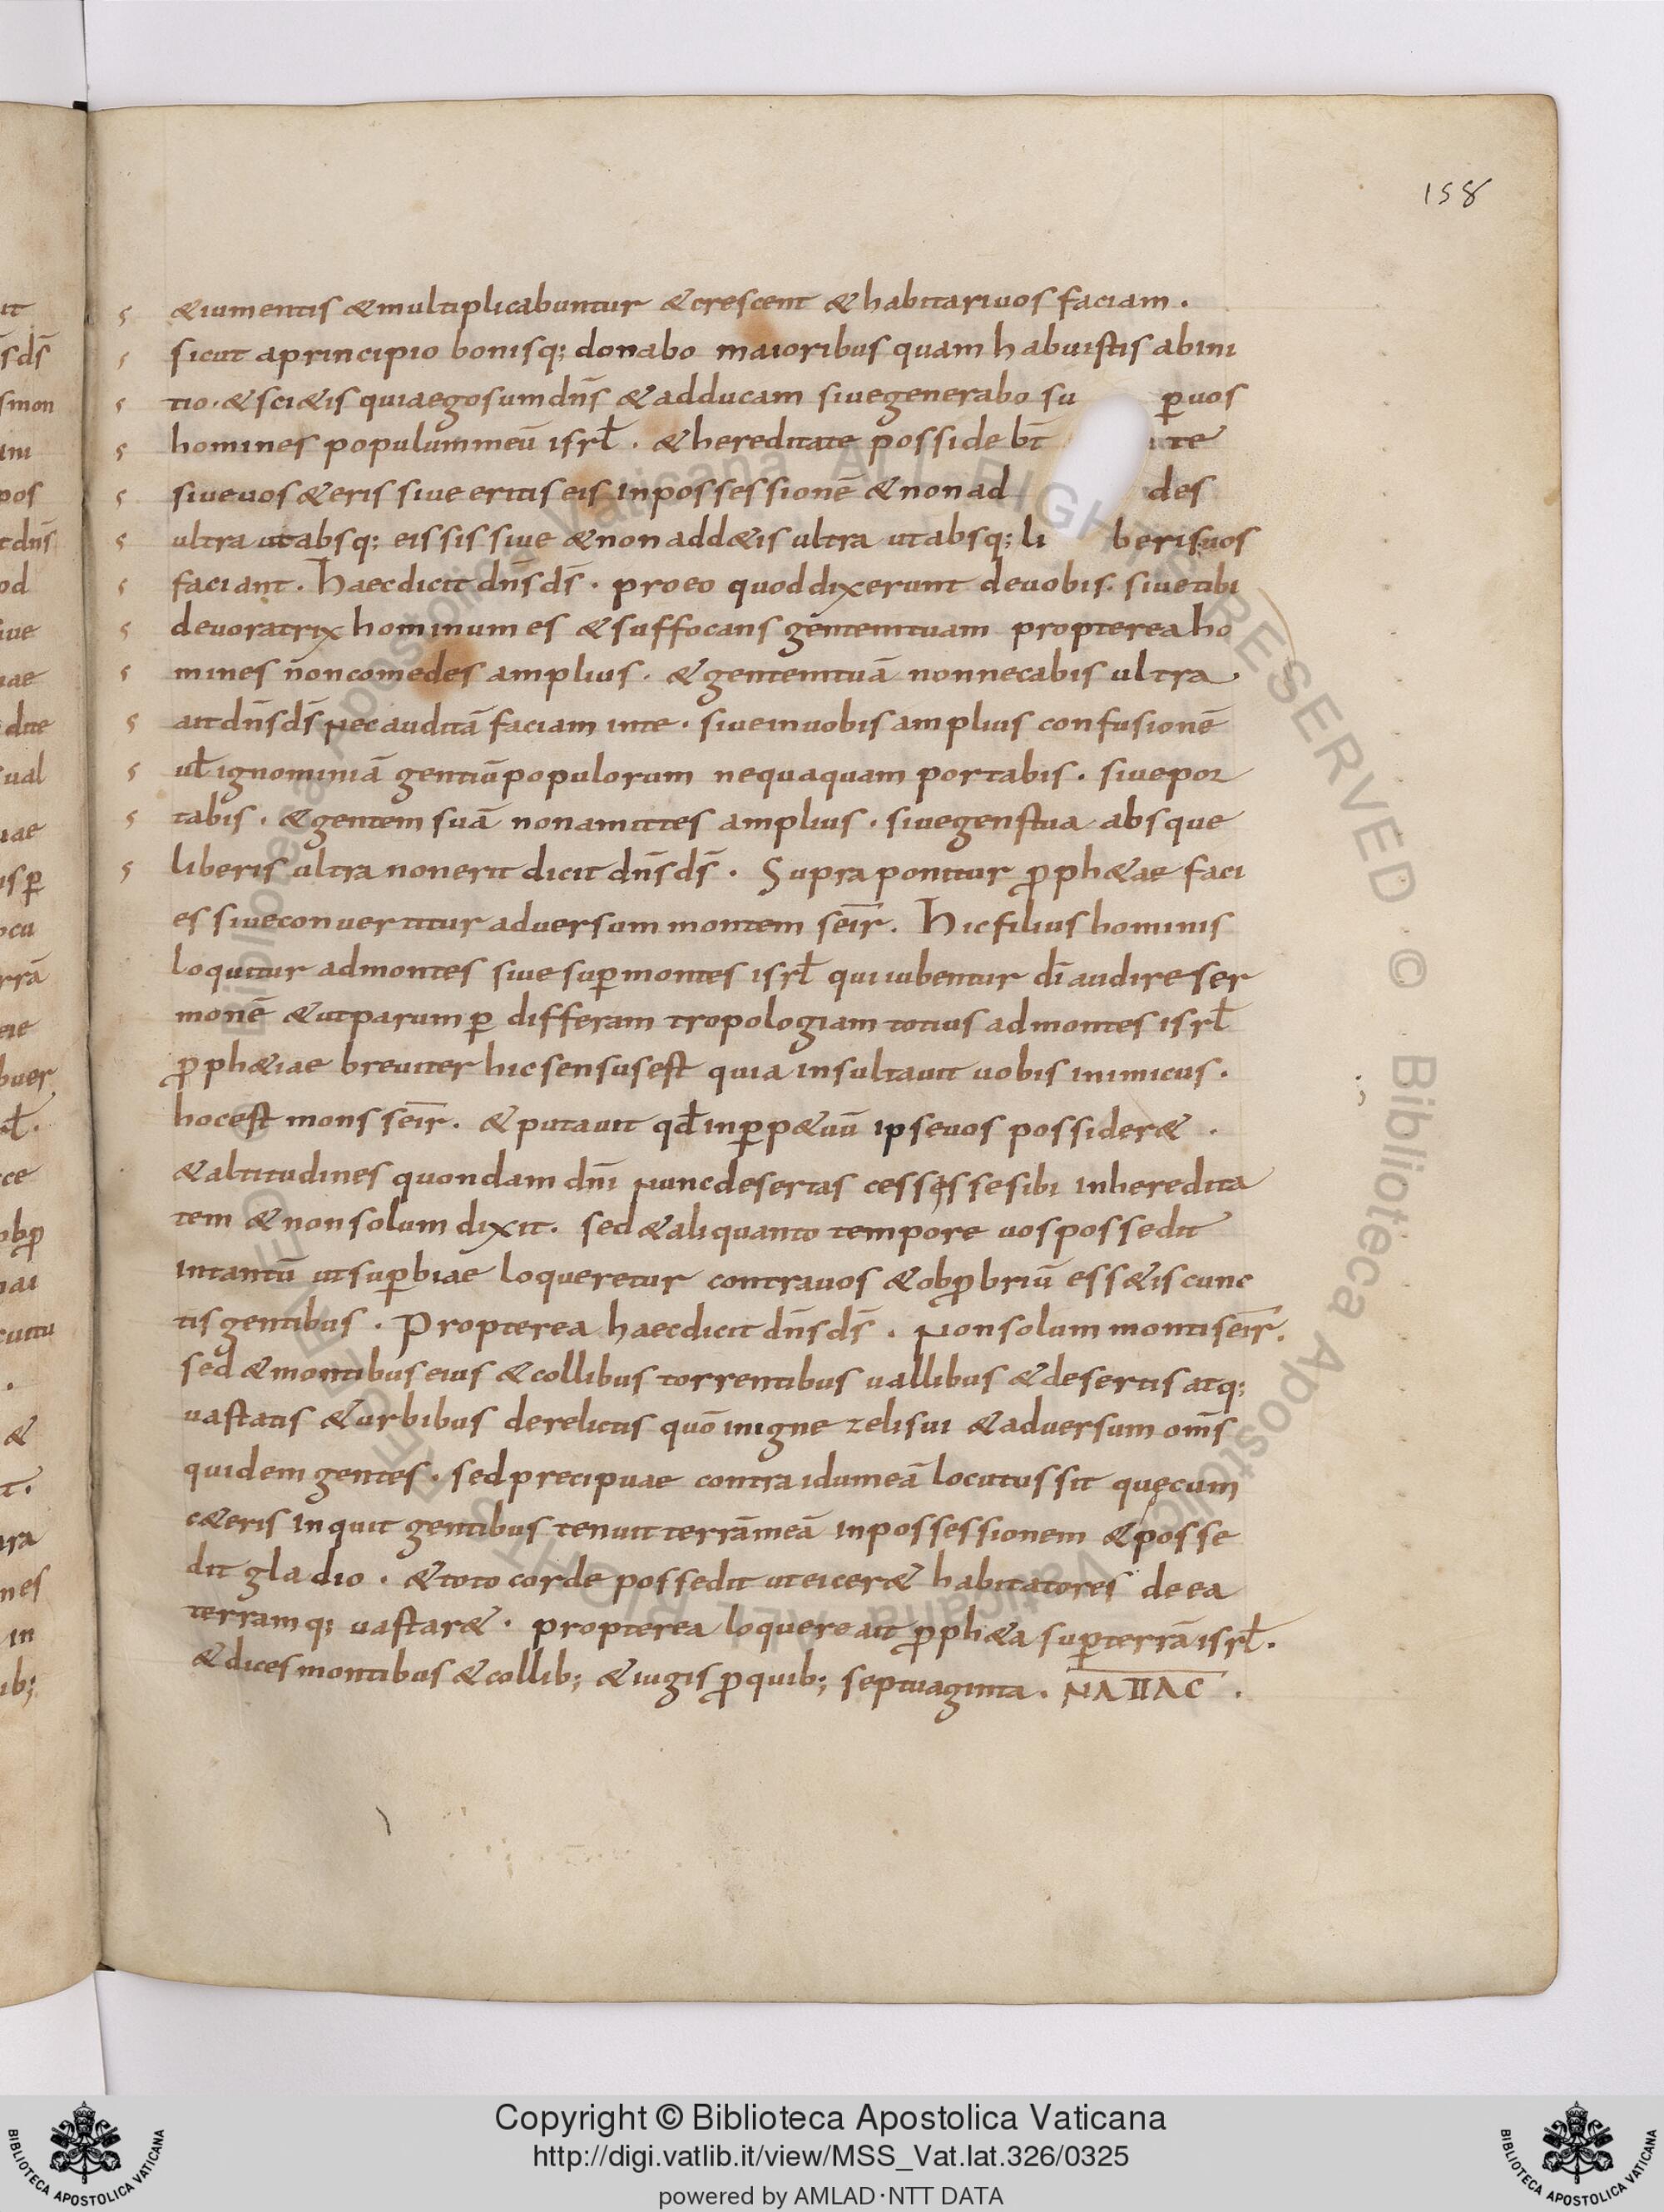 158
&iumentis &multiplicabuntur &crescent &habitariuosfaciam .
sicut aprincipio bonisq; donabo maioribus quam habuistis abini
tio. &sci&is quiaegosum dn̄s &adducam siuegenerabo su ꝑuos
homines populummeū isrl̄ . &hereditate posside bt̄ te
siueuos &eris siue eritis eis inpossessionē &non ad des
ultra utabsq; eis sis siue &non add&is ultra utabsq; li berisuos
faciant . haecdicit dn̄s ds̄ . proeo quoddixerunt deuobis. siuetibi
deuoratrix hominum es &suffocans gentemtuam propterea ho
mines noncomedes amplius . &gentemtuā nonnecabis ultra .
ait dn̄s ds̄ Nec auditā faciam inte . siueinuobis amplius confusionē
ul̄ ignominiā gentiūpopulorum nequaquam portabis . siuepor
tabis . &gentem suā nonamittes amplius . siuegenstua absque
liberis ultra nonerit dicit dn̄s ds̄ . Supraponitur ꝓph&ae faci
es siueconuertitur aduersum montem seir̄ . Hicfilius hominis
loquitur admontes siue suꝑmontes isrl̄ quiiubentur dī audire ser
monē &utparumꝑ differam tropologiam totius admontes isrl̄
ꝓph&iae breuiter hicsensusest quia insultauit uobis inimicus .
hocest mons seir̄ . &putauit qd̄ inꝑp&uū ipseuos possider& .
&altitudines quondam dn̄i Nuncdesertas cessęssesibi inheredita
tem &nonsolum dixit . sed&aliquanto tempore uospossedit
intantū utsuꝑbiae loqueretur contrauos &obꝓbriū ess&is cunc
tisgentibus . Propterea haecdicit dn̄s ds̄ . Nonsolum montiseir̄ .
sed&montibus eius &collibus torrentibus uallibus &desertis atq;
uastatis &urbibus derelictis quō inigne zelisui &aduersum om̄s
quidem gentes . sedprecipuae contraidumeā locutussit quęcum
c&eris inquit gentibus tenuit terrāmeā inpossessionem &posse
dit gladio . &toto corde possedit uteicer& habitatores deea
terramq; uastar& . propterea loquere ait ꝓph&a suꝑterrā isrl̄ .
&dices montibus &collib; &iugis ꝓquib; septuaginta . ΝΑΠΑC .
Copyright © Biblioteca Apostolica Vaticana
http://digi.vatlib.it/view/MSS_Vat.lat.326/0325
powered by AMLAD·NTT DATA